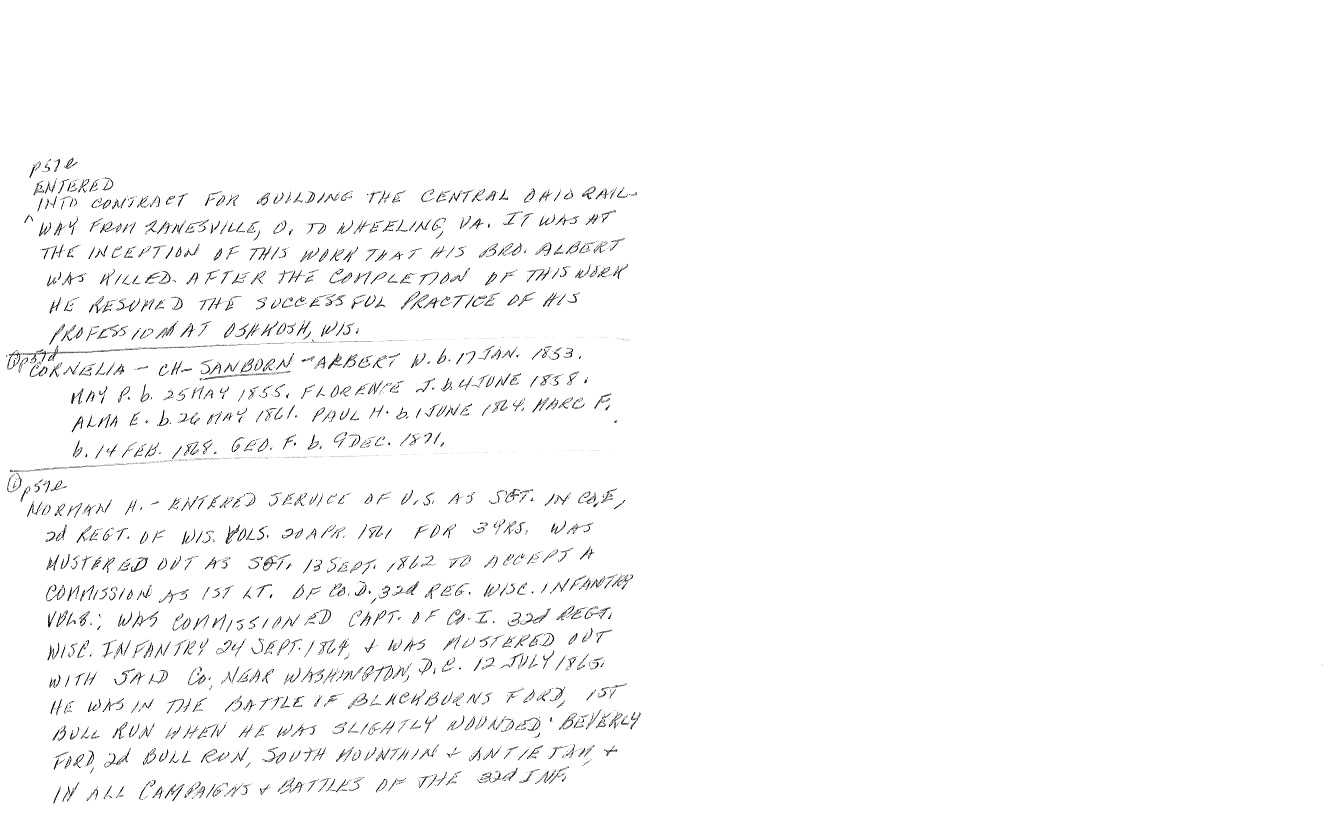 p57e
ENTERED
INTO CONTRACT FOR BUILDING THE CENTRAL OHIO RAIL-
^ WAY FROM ZANESVILLE, O. TO WHEELING, VA. IT WAS AT
THE INCEPTION OF THIS WORK THAT HIS BRO. ALBERT
WAS KILLED. AFTER THE COMPLETION OF THIS WORK
HE RESUMED THE SUCCESSFUL PRACTICE OF HIS
PROFESSION AT OSHKOSH, WIS.
p57d
CORNELIA - CH - SANBORN - ARBERT W. b. 17 JAN. 1853.
MAY P. b. 25 MAY 1855. FLORENCE J. b. 4 JUNE 1858.
ALMA E. b. 26 MAY 1861. PAUL H. b. 1 JUNE 1864. MARC F.
b. 14 FEB. 1868. GEO. F. b. 9 DEC. 1871.
p57e
NORMAN H. - ENTERED SERVICE OF U.S. AS SGT. IN CO. E,
2d REGT. OF WIS. VOLS. 20 APR. 1861 FOR 3 YRS. WAS
MUSTERED OUT AS SGT. 13 SEPT. 1862 TO ACCEPT A
COMMISSION AS 1ST LT. OF CO. D., 32d REG. WISC. INFANTRY
VOLS.; WAS COMMISSIONED CAPT. OF CO. I. 32d REGT.
WISC. INFANTRY 24 SEPT. 1864, & WAS MUSTERED OUT
WITH SAID CO. NEAR WASHINGTON, D.C. 12 JULY 1865.
HE WAS IN THE BATTLE OF BLACKBURNS FORD, 1ST
BULL RUN WHEN HE WAS SLIGHTLY WOUNDED; BEVERLY
FORD, 2d BULL RUN, SOUTH MOUNTAIN & ANTIETAM, &
IN ALL CAMPAIGNS & BATTLES OF THE 32d INF.